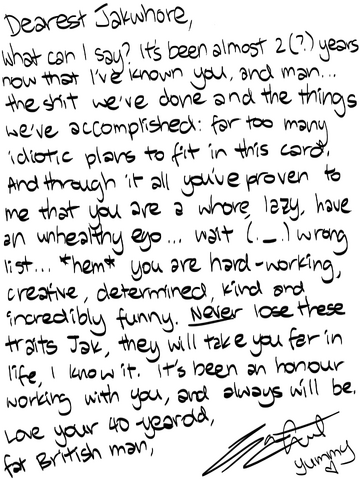 Dearest Jakwhore,
What can I say? It's been almost 2(?) years
now that I've known you, and man...
the shit we've done and the things
we've accomplished: far too many
idiotic plans to fit in this card.
And through it all you've proven to
me that you are a whore, lazy, have
an unhealthy ego... wait (._.) wrong
list... *hem* you are hard-working,
creative, determined, kind and
incredibly funny. Never lose these
traits Jak, they will take you far in
life, I know it. It's been an honour
working with you, and always will be.
Love your 40-yearold,
fat British man,
yummy